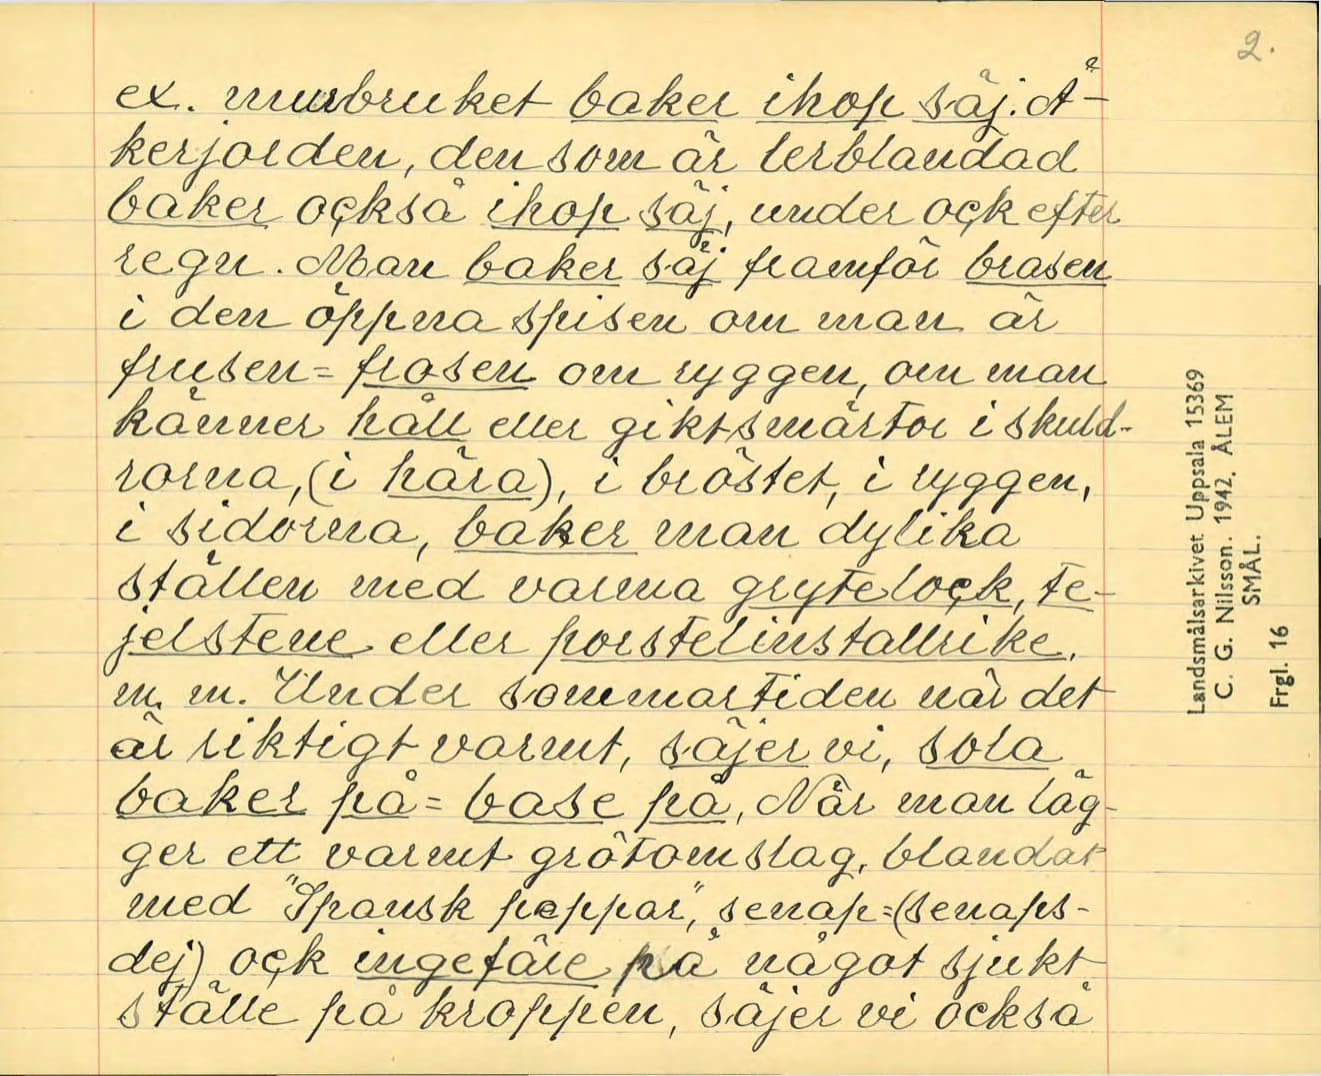 2.
ex. murbruket baker ihop säj. Å-
kerjorden, den som är lerblandad
baker också ihop säj, under ock efter
regn. Man baker säj framför brasen
i den öppna spisen om man är
frusen = frosen om ryggen, om man
känner håll eller giktsmärtor i skuld-
rorna, (i håra), i bröstet, i ryggen,
i sidorna, baker man dylika
ställen med varma grytelock, te-
jelstene eller porstelinstallrike,
m. m. Under sommartiden når det
är riktigt varmt, säjer vi, sola
baker på = base på, När man läg-
ger ett varmt grötomslag, blandat
med "Spansk peppar", senap = (senaps-
dej) ock ingefäre på något sjukt
ställe på kroppen, säjer vi också
Landsmålsarkivet Uppsala 15369
C. G. Nilsson. 1942. ÅLEM
SMÅL.
Frgl. 16